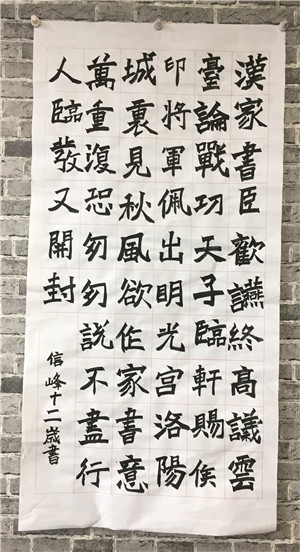 漢家書臣歡讌終高議雲
臺論戰功天子臨軒賜侯
印將軍佩出明光宮洛陽
城裏見秋風欲作家書意
萬重復恐匆匆說不盡行
人臨發又開封
信峰十二歲書